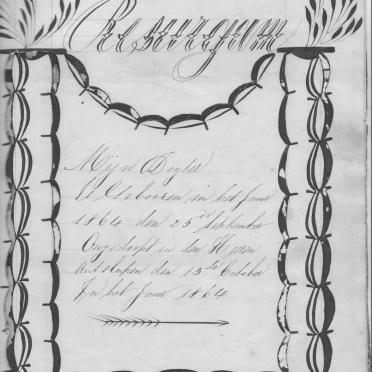 Resurgam
Mijn Dogter
is Geboren in het Jaar
1864 den 25 September
Ongedoopt in den Heere
ontslapen den 13de October
In het Jaar 1864